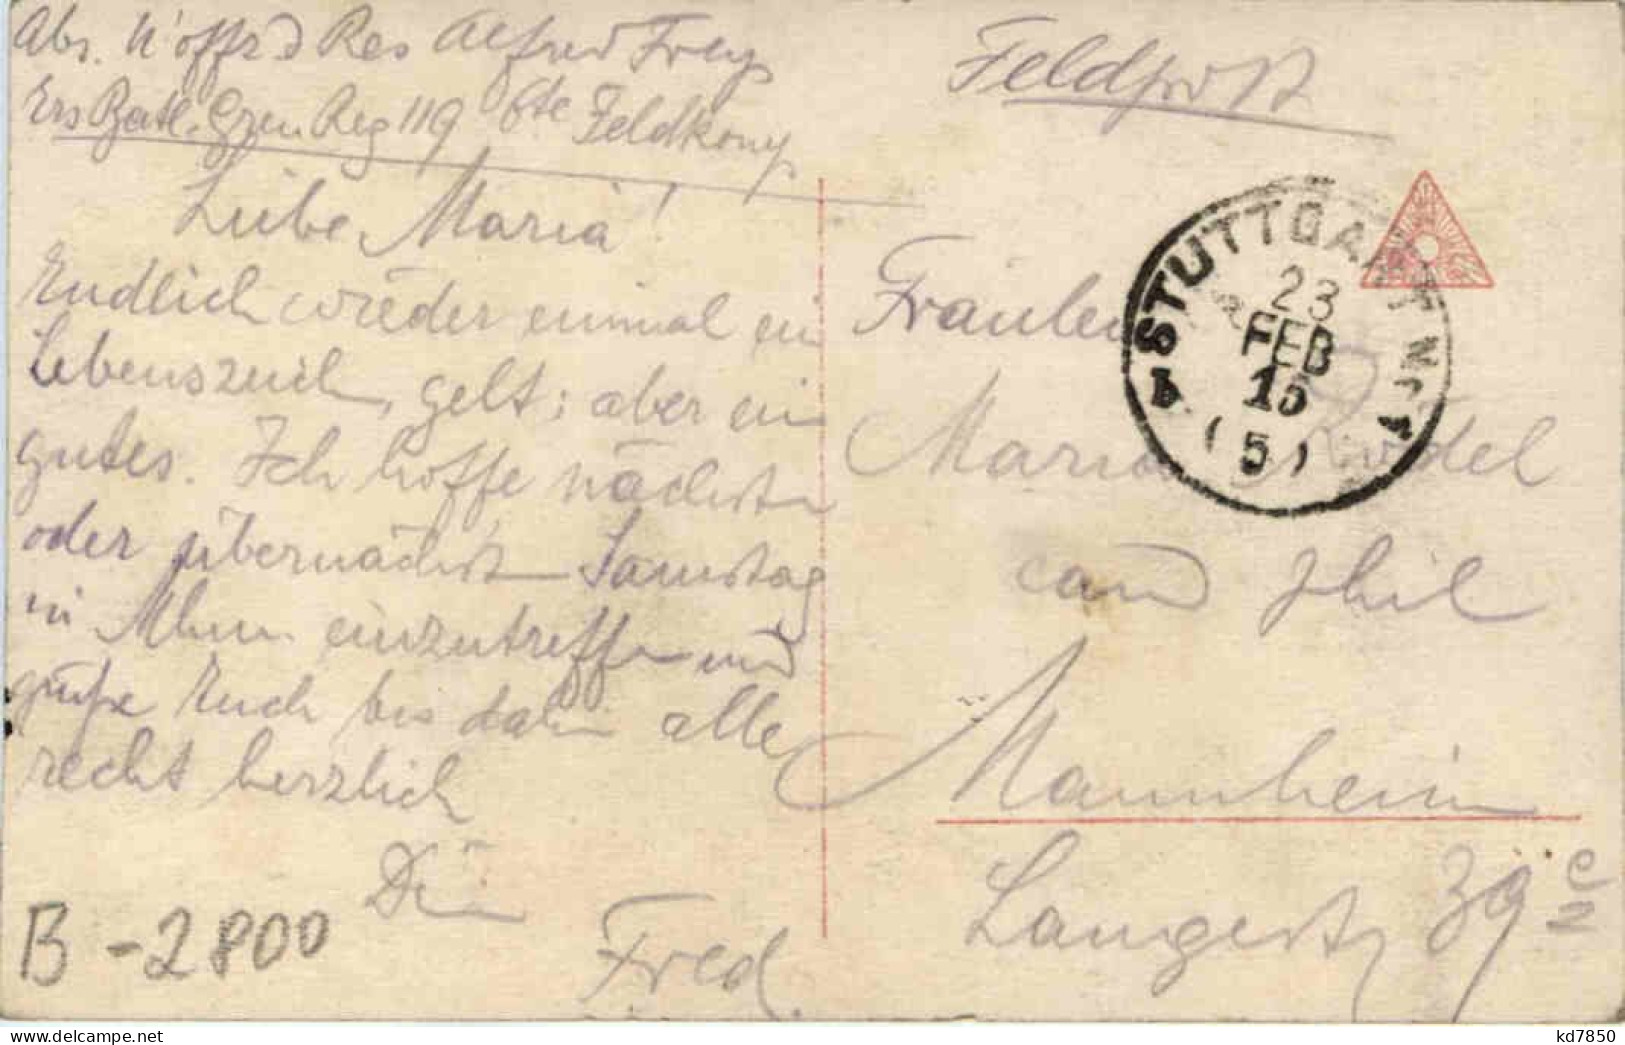 Abs. U'offz d Res Alfred Frey
Ers Batl. Gren Reg 119 6te Feldkomp
Feldpost
Liebe Maria!
Endlich wieder einmal ein
Lebenszeich, gelt; aber ein
gutes. Ich hoffe nächsten
oder übernächsten Samstag
in Mhm einzutreffen und
grüße Euch bis dahin alle
recht herzlich
Dein
Fred.
B - 2800
STUTTGART Nr. 1
23
FEB
15
(5)
Fräulein
Maria
cand phil
Mannheim
Langestr 39
delcampe.net
kd7850